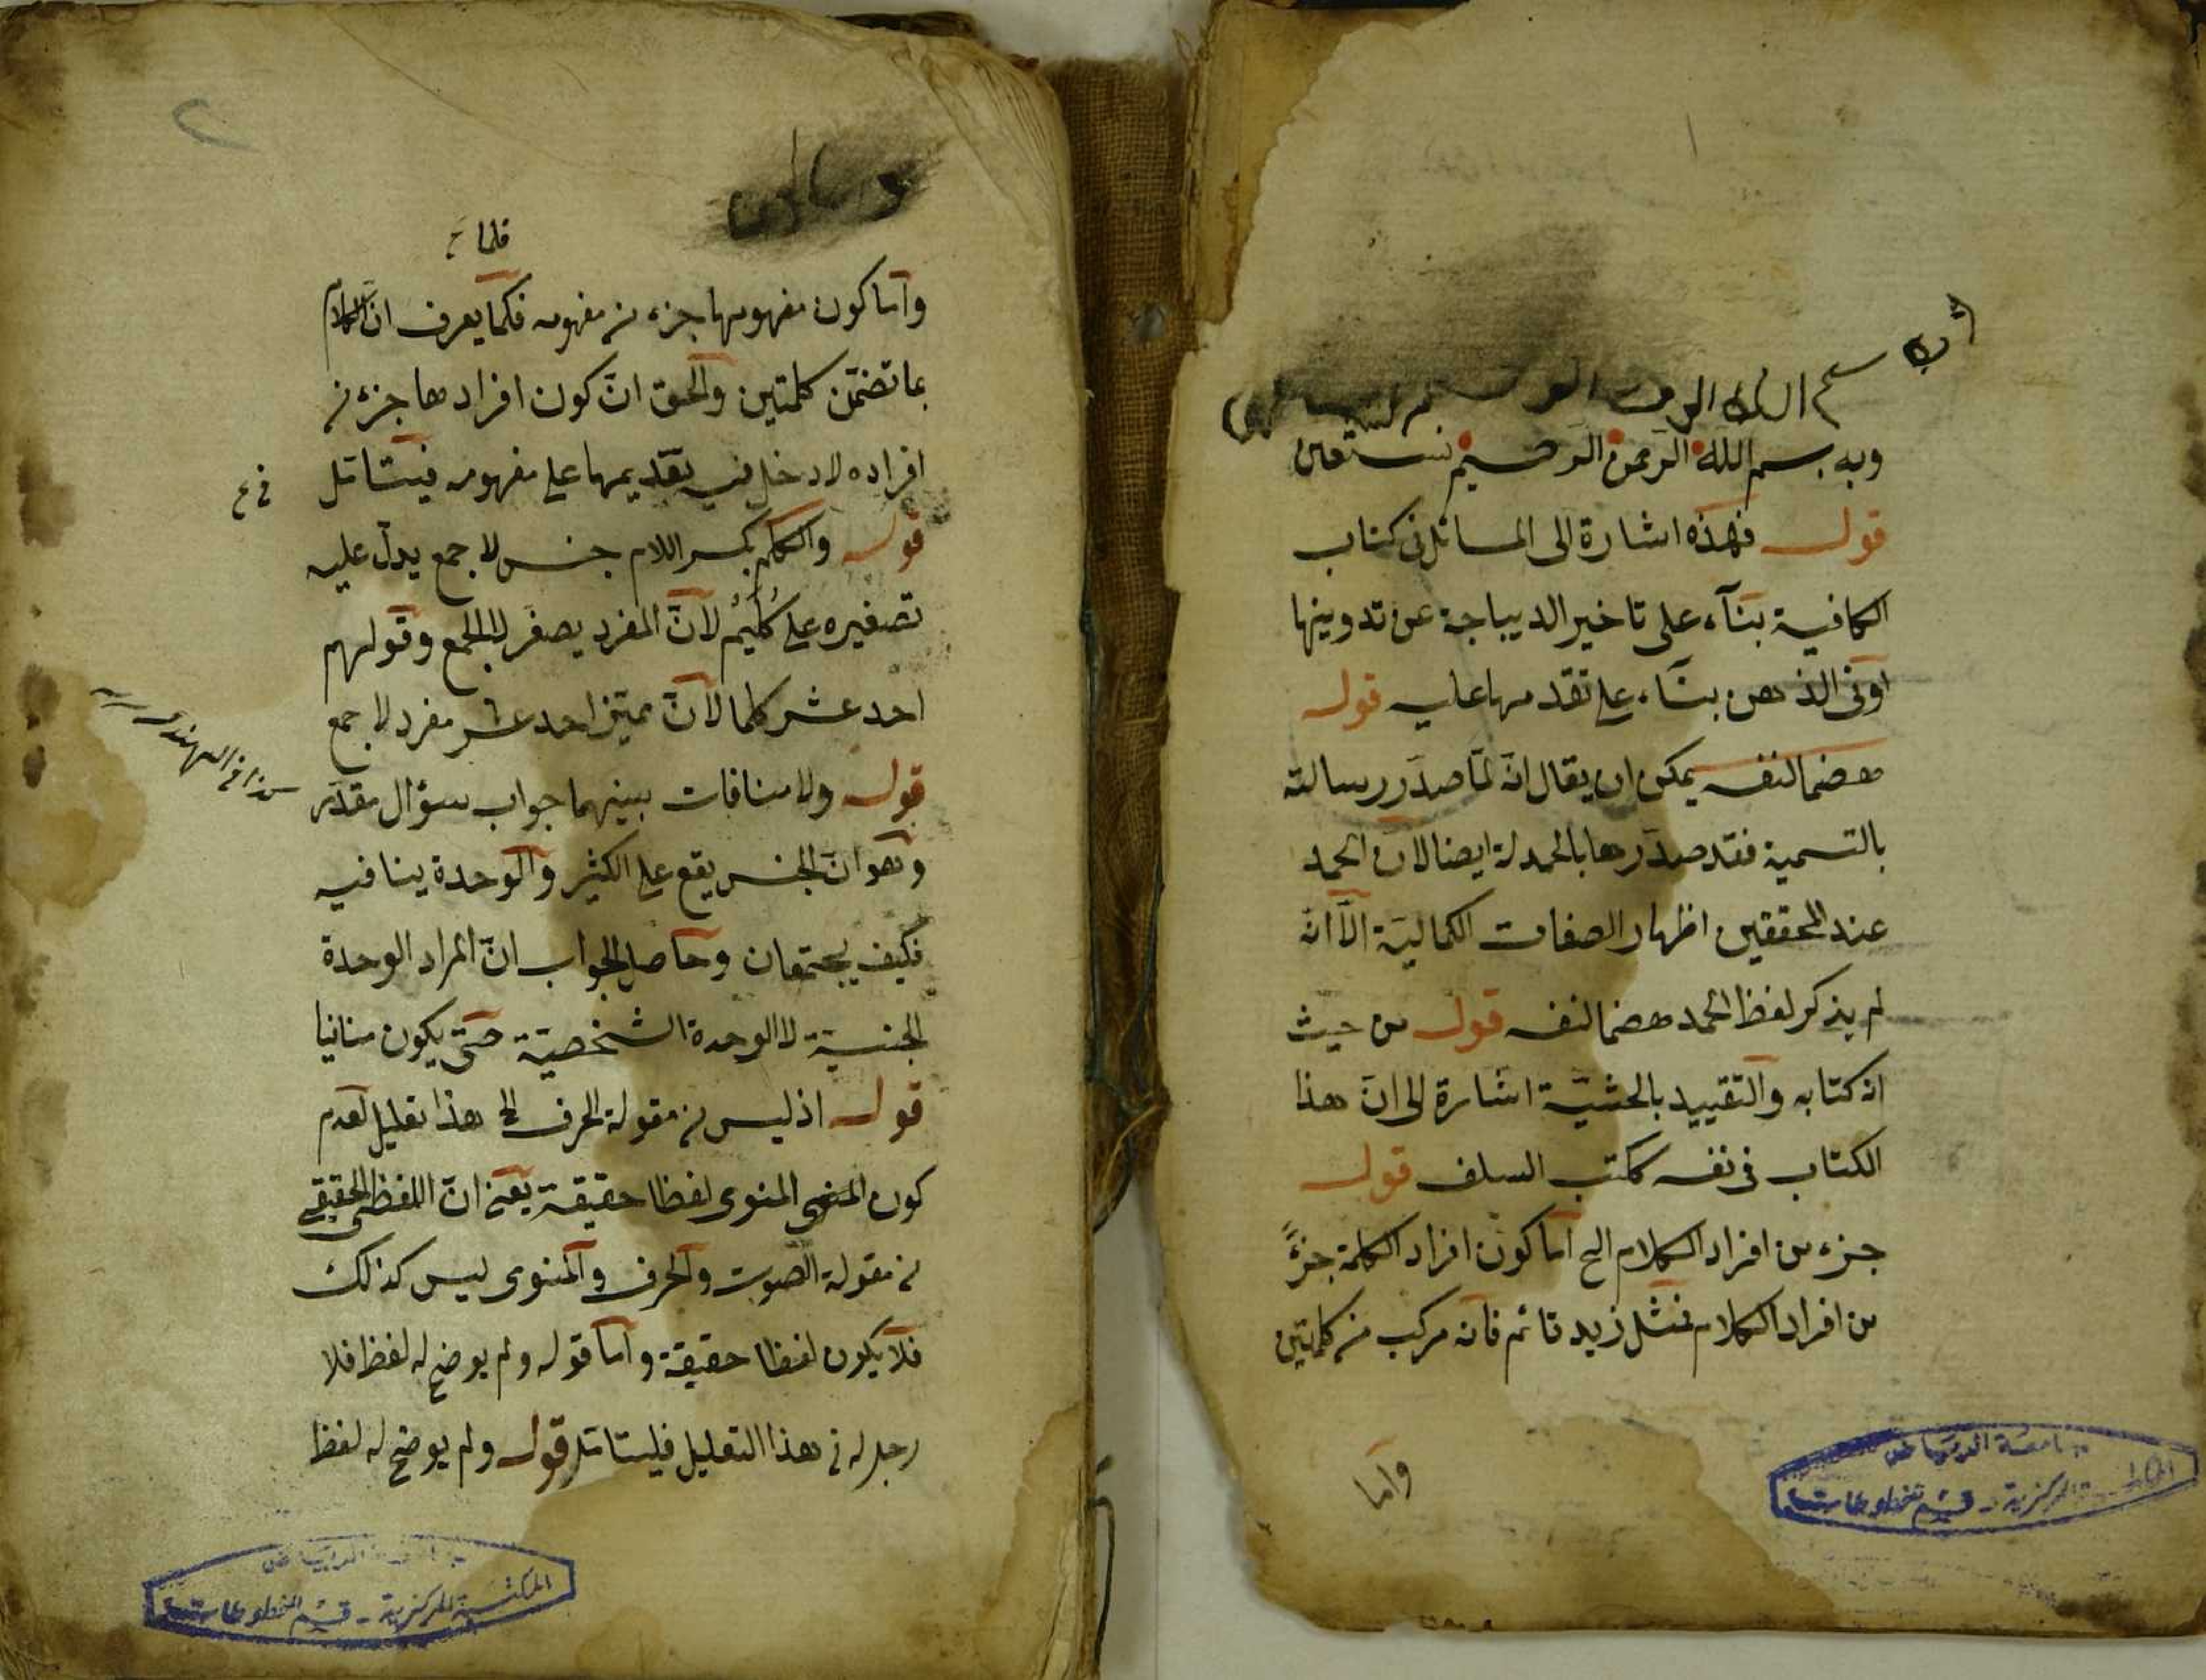 وبه بسم الله الرحمن الرحيم نستعين
قوله فهذه اشارة الى المسائل في كتاب
الكافية بنآء على تاخير الديباجة عن تدوينها
او في الذهن بنآء على تقدمها عليه قوله
هضما لنفسه يمكن ان يقال انه لما صدّر رسالته
بالتسمية فقد صدّرها بالحمدلة ايضا لان الحمد
عند المحققين اظهار الصفات الكمالية الّا انه
لم يذكر لفظ الحمد هضما لنفسه قوله من حيث
انه كتابه والتقييد بالحيثية اشارة الى انّ هذا
الكتاب في نفسه ككتب السلف قوله
جزء من افراد الكلام الخ اما كون افراد الكلمة جزءً
من افراد الكلام فمثل زيد قائم فانه مركب من كلمتين
وآما
جامعة الرياض
المركزية - قسم المخطوطات
٢
وآما كون مفهومها جزء من مفهومه فكما يعرف انّ الكلام
بما تضمّن كلمتين والحق انّ كون افرادها جزء من
افراده لا دخل فيه بتقديمها على مفهومه فيتامل
قوله والكلم بكسر اللام جنس لا جمع يدلّ عليه
تصغيره على كُلَيْمٌ لانّ المفرد يصغّر لا الجمع وقولهم
احد عشر كلما لانّ مميّز احد عشر مفرد لا جمع
قوله ولا منافات بينهما جواب سؤال مقدّر
وهو انّ الجنس يقع على الكثير والوحدة ينافيه
فكيف يجتمعان وحاصل الجواب انّ المراد الوحدة
الجنسية لا الوحدة الشخصيّة حتى يكون منافيا
قوله اذ ليس من مقولة الحرف الخ هذا تعليل لعدم
كون المنوى لفظا حقيقة يعني انّ اللفظ الحقيقي
من مقولة الصوت والحرف والمنوى ليس كذلك
فلا يكون لفظا حقيقة وآما قوله ولم يوضع له لفظ فلا
دخل له في هذا التعليل فليتامل قوله ولم يوضع له لفظ
جامعة الرياض
المكتبة المركزية - قسم المخطوطات